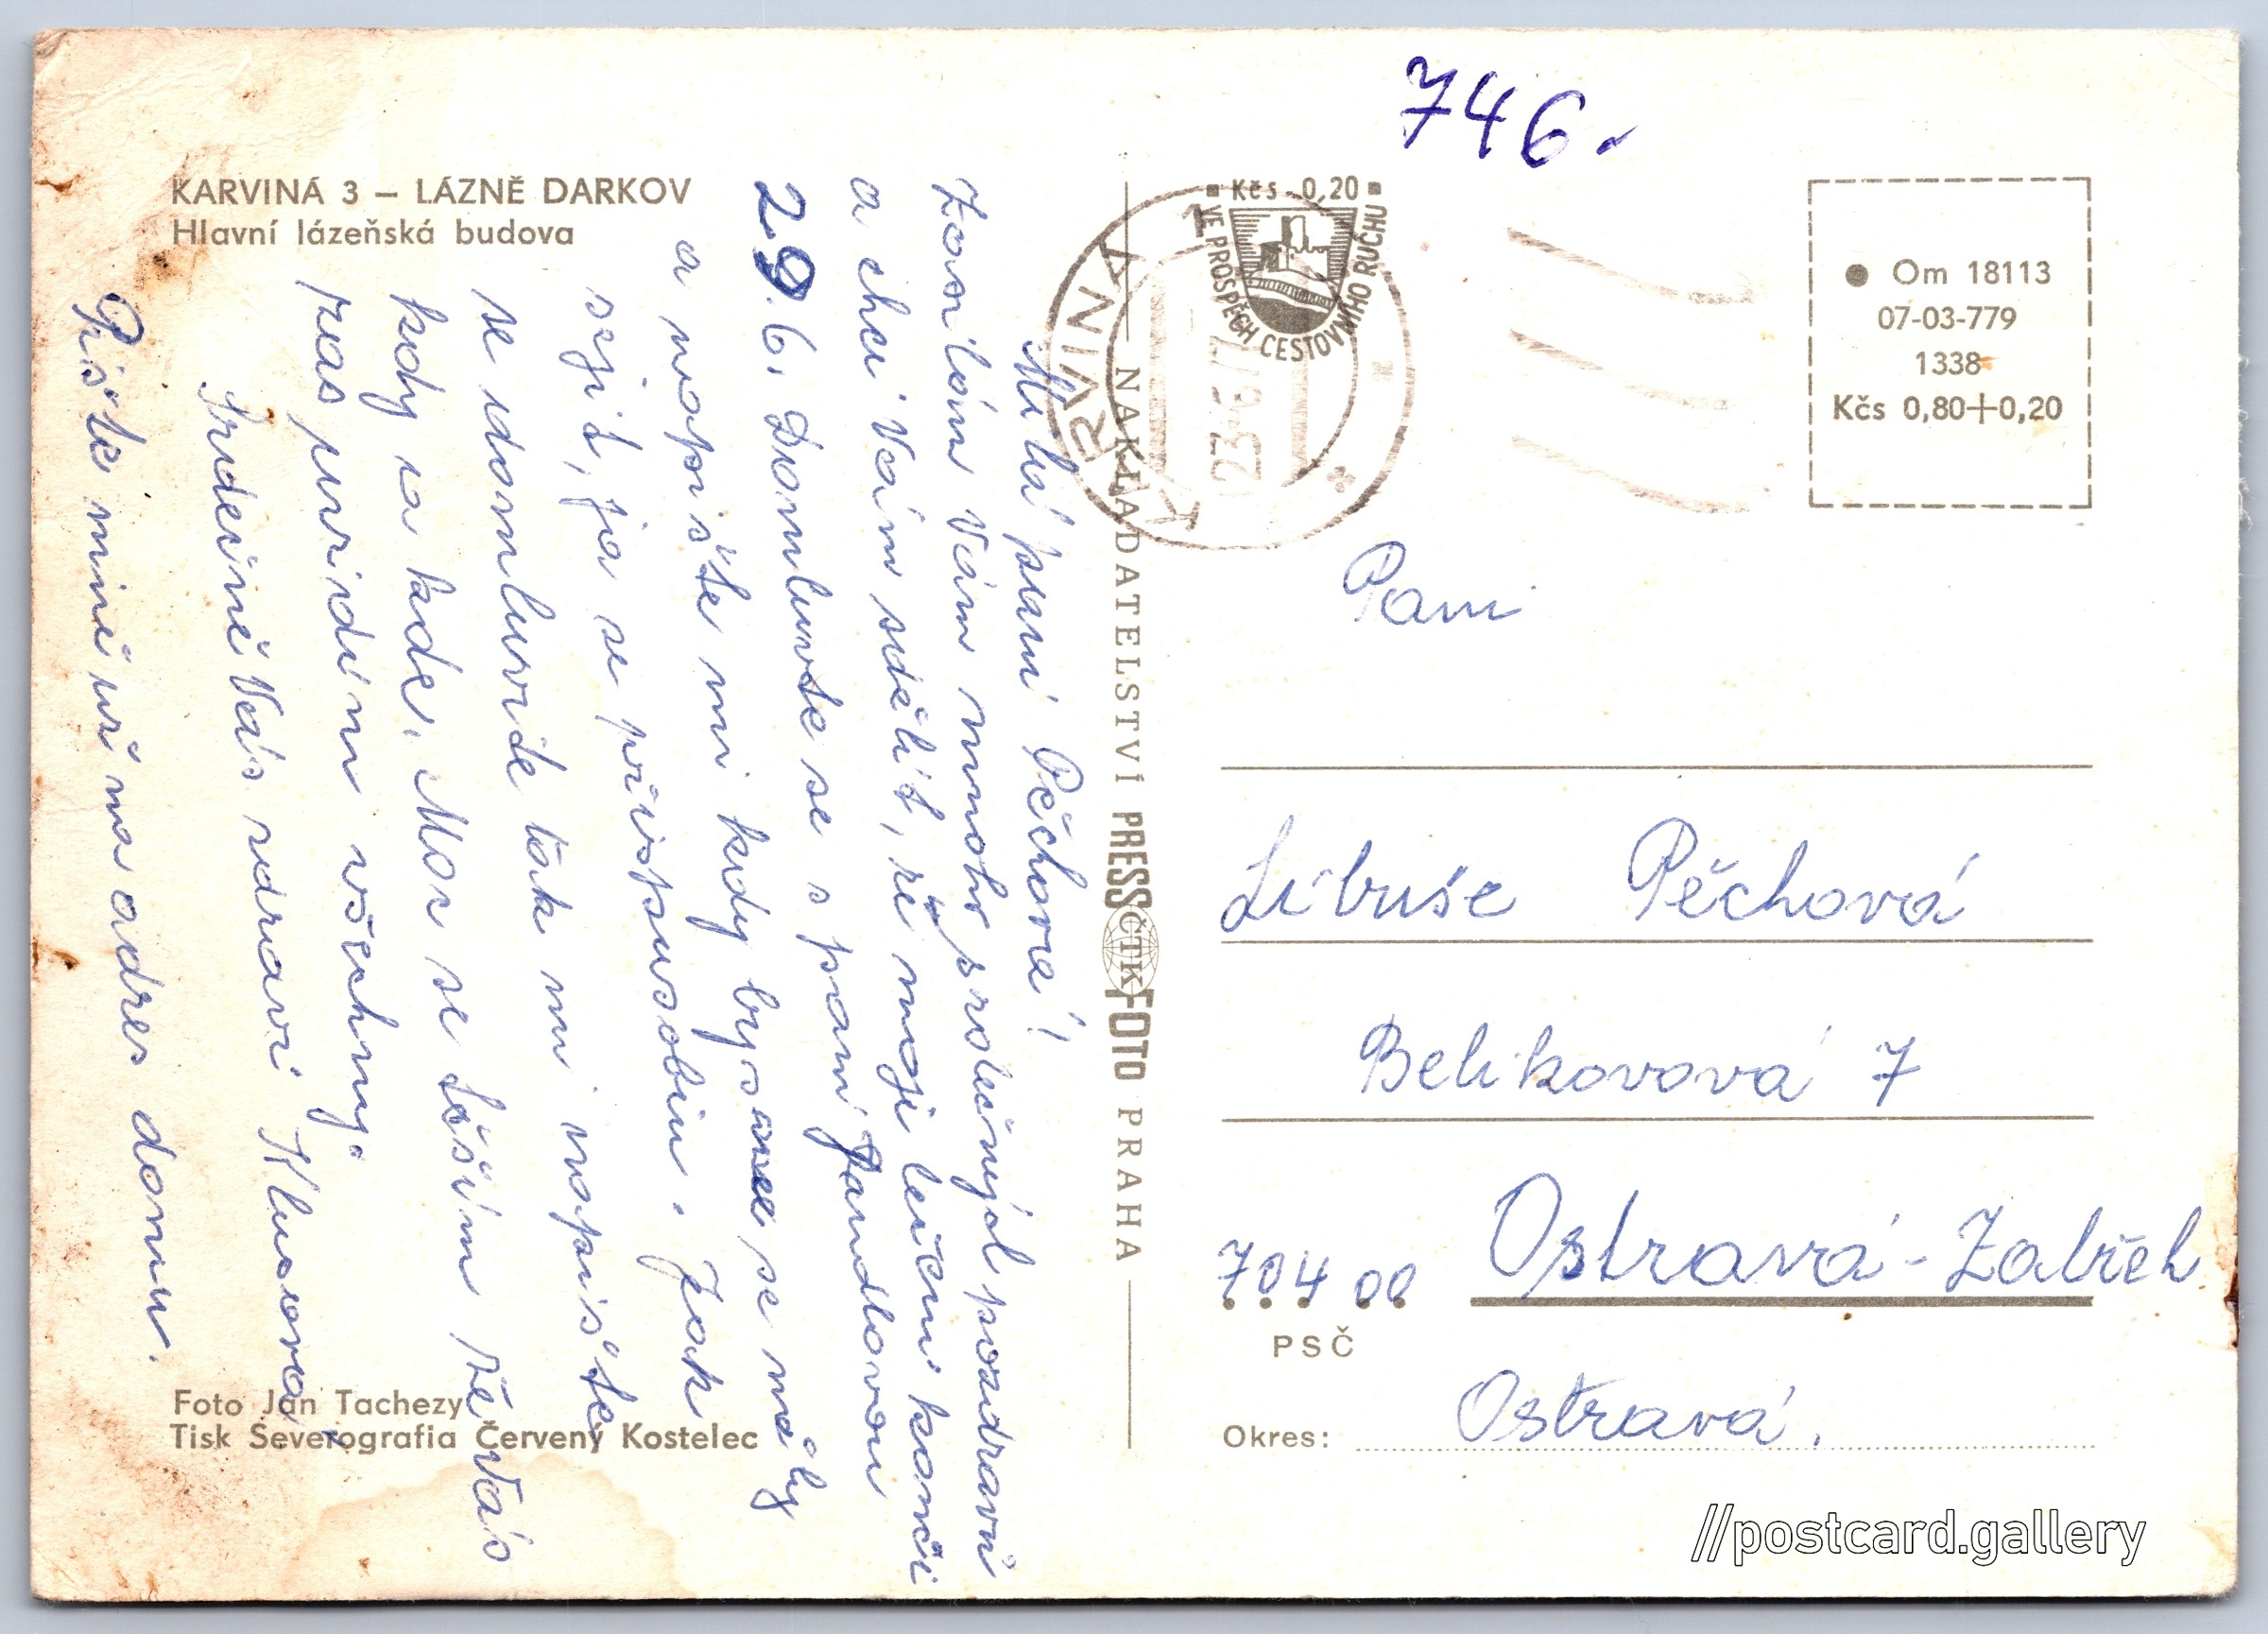 746.
KARVINÁ 3 – LÁZNĚ DARKOV
Hlavní lázeňská budova
Milá paní Pěchova!
Zasilám Vám mnoho srdečných pozdravů
a chci Vám sdělit, že moji lečeni konči
29. 6. Domluvte se s paní Jandlovou
a napište mi kdy bysme se měly
sejit, ja se přispusobim. Jak
se domluvide tak mi napiště
kdy a kde. Moc se těším že Vás
zas uvidím všechny.
Srdečně Vás zdraví Klusova
Pište mně už na adres domu.
Foto Jan Tachezy
Tisk Severografia Červený Kostelec
NAKLADATELSTVÍ PRESSFOTO PRAHA
ČTK
Kčs 0,20
VE PROSPĚCH CESTOVNÍHO RUCHU
KARVINÁ 1
23.-6.77
Om 18113
07-03-779
1338
Kčs 0,80+0,20
Pani
Libuše Pěchová
Belikovová 7
704 00 Ostravá-Zabřeh
PSČ
Okres: Ostravá.
//postcard.gallery